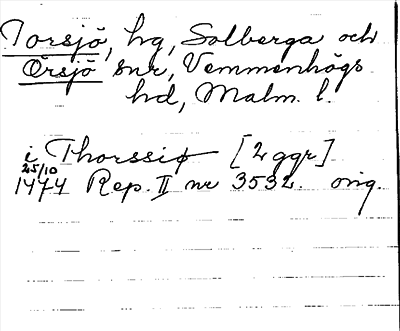 Torsjö, hg, Solberga och
Örsjö snr, Vemmenhögs
hd, Malm. l.
i Thorssiø [2 ggr]
25/10
1474 Rep. II nr 3532. orig.